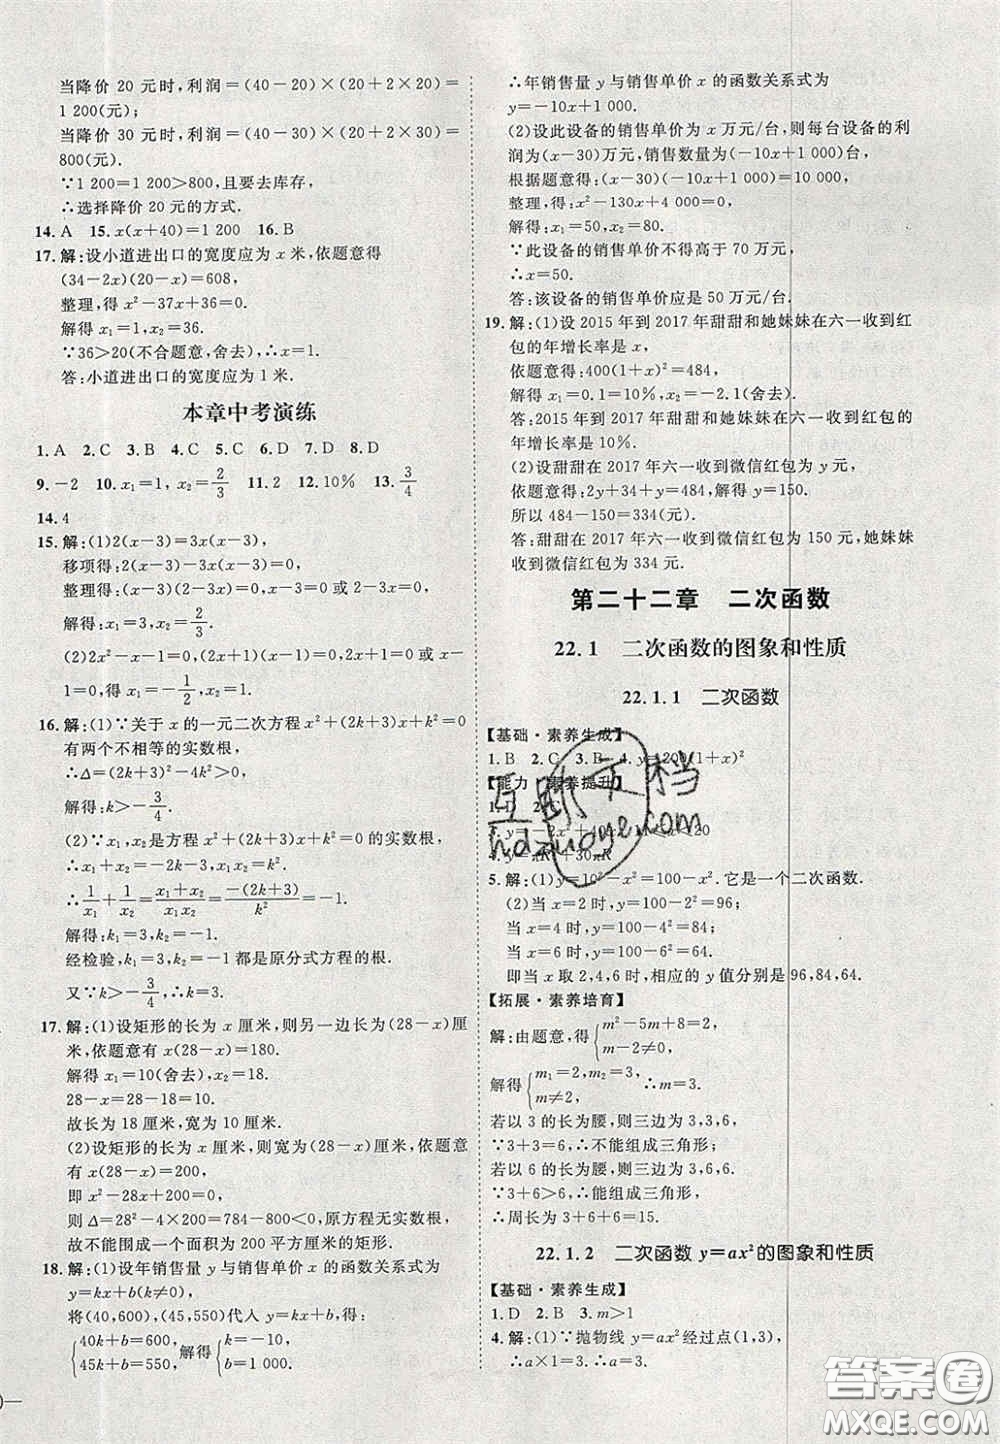 当降价 20 元时,利润=(40-20)×(20+2×20)=
1 200(元);
当降价 30 元时,利润=(40-30)×(20+2×30)=
800(元).
∵1 200=1 200>800,且要去库存,
∴选择降价 20 元的方式.
14. A  15. x(x+40)=1 200  16. B
17. 解:设小道进出口的宽度应为 x 米,依题意得
(34-2x)(20-x)=608,
整理,得 x²-37x+36=0.
解得 x₁=1,x₂=36.
∵36>20(不合题意,舍去),∴x=1.
答:小道进出口的宽度应为 1 米.
本章中考演练
1. A  2. C  3. B  4. C  5. C  6. D  7. C  8. D
9. -2  10. x₁=1, x₂=2/3  11. 2  12. 10%  13. 3/4
14. 4
15. 解:(1)2(x-3)=3x(x-3),
移项得:2(x-3)-3x(x-3)=0,
整理得:(x-3)(2-3x)=0,x-3=0 或 2-3x=0,
解得:x₁=3,x₂=2/3.
(2)2x²-x-1=0,(2x+1)(x-1)=0,2x+1=0 或 x-1=0,x₁=-1/2,x₂=1.
16. 解:(1)∵关于 x 的一元二次方程 x²+(2k+3)x+k²=0
有两个不相等的实数根,
∴Δ=(2k+3)²-4k²>0,
解得:k>-3/4.
(2)∵x₁,x₂是方程 x²+(2k+3)x+k²=0 的实数根,
∴x₁+x₂=-2k-3,x₁x₂=k²,
∴1/x₁+1/x₂=(x₁+x₂)/(x₁x₂)=-(2k+3)/k²=-1,
解得:k₁=3,k₂=-1.
经检验,k₁=3,k₂=-1 都是原分式方程的根.
又∵k>-3/4,∴k=3.
17. 解:(1)设矩形的长为 x 厘米,则另一边长为(28-x)厘
米,依题意有 x(28-x)=180.
解得 x₁=10(舍去),x₂=18.
28-x=28-18=10.
故长为 18 厘米,宽为 10 厘米.
(2)设矩形的长为 x 厘米,则宽为(28-x)厘米,依题意
有 x(28-x)=200,
即 x²-28x+200=0,
则 Δ=28²-4×200=784-800<0,原方程无实数根,
故不能围成一个面积为 200 平方厘米的矩形.
18. 解:(1)设年销售量 y 与销售单价 x 的函数关系式为
y=kx+b(k≠0),
将(40,600),(45,550)代入 y=kx+b,得
{40k+b=600, 45k+b=550, 解得{k=-10, b=1 000.
∴年销售量 y 与销售单价 x 的函数关系式为
y=-10x+1 000.
(2)设此设备的销售单价为 x 万元/台,则每台设备的利
润为(x-30)万元,销售数量为(-10x+1 000)台,
根据题意得:(x-30)(-10x+1 000)=10 000,
整理,得:x²-130x+4 000=0,
解得:x₁=50,x₂=80.
∵此设备的销售单价不得高于 70 万元,
∴x=50.
答:该设备的销售单价应是 50 万元/台.
19. 解:(1)设 2015 年到 2017 年甜甜和她妹妹在六一收到红
包的年增长率是 x,
依题意得:400(1+x)²=484,
解得 x₁=0.1=10%,x₂=-2.1(舍去).
答:2015 年到 2017 年甜甜和她妹妹在六一收到红包的
年增长率是 10%.
(2)设甜甜在 2017 年六一收到微信红包为 y 元,
依题意得:2y+34+y=484,解得 y=150.
所以 484-150=334(元).
答:甜甜在 2017 年六一收到微信红包为 150 元,她妹妹
收到微信红包为 334 元.
第二十二章 二次函数
22.1 二次函数的图象和性质
22.1.1 二次函数
【基础·素养生成】
1. B  2. C  3. B  4. y=200(1+x)²
【能力·素养提升】
5. 解:(1)y=10²-x²=100-x². 它是一个二次函数.
(2)当 x=2 时,y=100-2²=96;
当 x=4 时,y=100-4²=84;
当 x=6 时,y=100-6²=64.
即当 x 取 2,4,6 时,相应的 y 值分别是 96,84,64.
【拓展·素养培育】
解:由题意,得{m²-5m+8=2, m-2≠0,
解得{m₁=2,m₂=3, m≠2. ∴m=3.
若以 3 的长为腰,则三边为 3,3,6.
∵3+3=6,∴不能组成三角形;
若以 6 的长为腰,则三边为 3,6,6.
∵3+6>6,∴能组成三角形,
∴周长为 3+6+6=15.
22.1.2 二次函数 y=ax²的图象和性质
【基础·素养生成】
1. D  2. B  3. m>1
4. 解:(1)∵抛物线 y=ax²经过点(1,3),
∴a×1=3,∴a=3.
互助文档
hdzuoye.com
答案圈
MXQE.COM